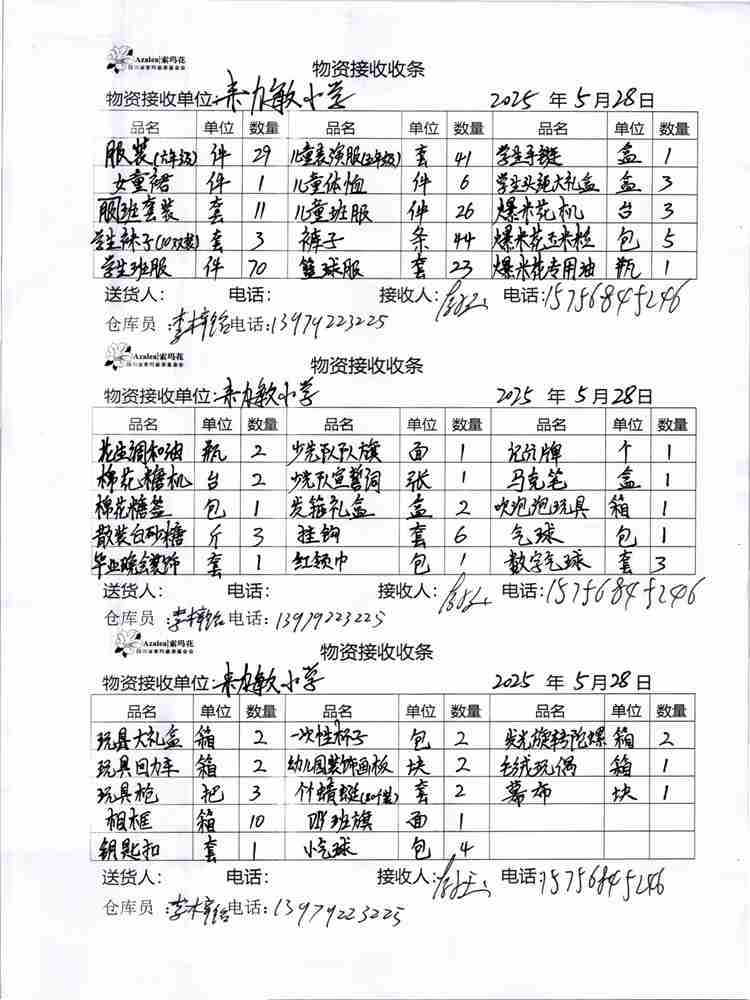 Azalea|索玛花
四川省索玛慈善基金会
物资接收收条
物资接收单位:来力敏小学 2025 年 5 月 28 日
品名 单位 数量 品名 单位 数量 品名 单位 数量
服装(六年级) 件 29 儿童表演服(五年级) 套 41 学生手链 盒 1
女童裙 件 1 儿童体恤 件 6 学生头绳大礼盒 盒 3
班套装 套 11 儿童班服 件 26 爆米花机 台 3
学生袜子(10双装) 套 3 裤子 条 44 爆米花玉米粒 包 5
学生班服 件 70 篮球服 套 23 爆米花专用油 瓶 1
送货人: 电话: 接收人: 电话:15756845246
仓库员: 电话:13979223225
Azalea|索玛花
四川省索玛慈善基金会
物资接收收条
物资接收单位:来力敏小学 2025 年 5 月 28 日
品名 单位 数量 品名 单位 数量 品名 单位 数量
花生调和油 瓶 2 少先队队旗 面 1 记分牌 个 1
棉花糖机 台 2 少先队宣誓词 张 1 马克笔 盒 1
棉花糖签 包 1 发箍礼盒 盒 2 吹泡泡玩具 箱 1
散装白砂糖 斤 3 挂钩 套 6 气球 包 1
毕业晚会装饰 套 1 红领巾 包 1 数字气球 套 3
送货人: 电话: 接收人: 电话:15756845246
仓库员: 电话:13979223225
Azalea|索玛花
四川省索玛慈善基金会
物资接收收条
物资接收单位:来力敏小学 2025 年 5 月 28 日
品名 单位 数量 品名 单位 数量 品名 单位 数量
玩具大礼盒 箱 2 一次性杯子 包 2 发光旋转陀螺 箱 2
玩具回力车 箱 2 幼儿园装饰画板 块 2 毛绒玩偶 箱 1
玩具枪 把 3 竹蜻蜓 套 2 幕布 块 1
相框 箱 10 班旗 面 1
钥匙扣 套 1 小气球 包 4
送货人: 电话: 接收人: 电话:15756845246
仓库员: 电话:13979223225